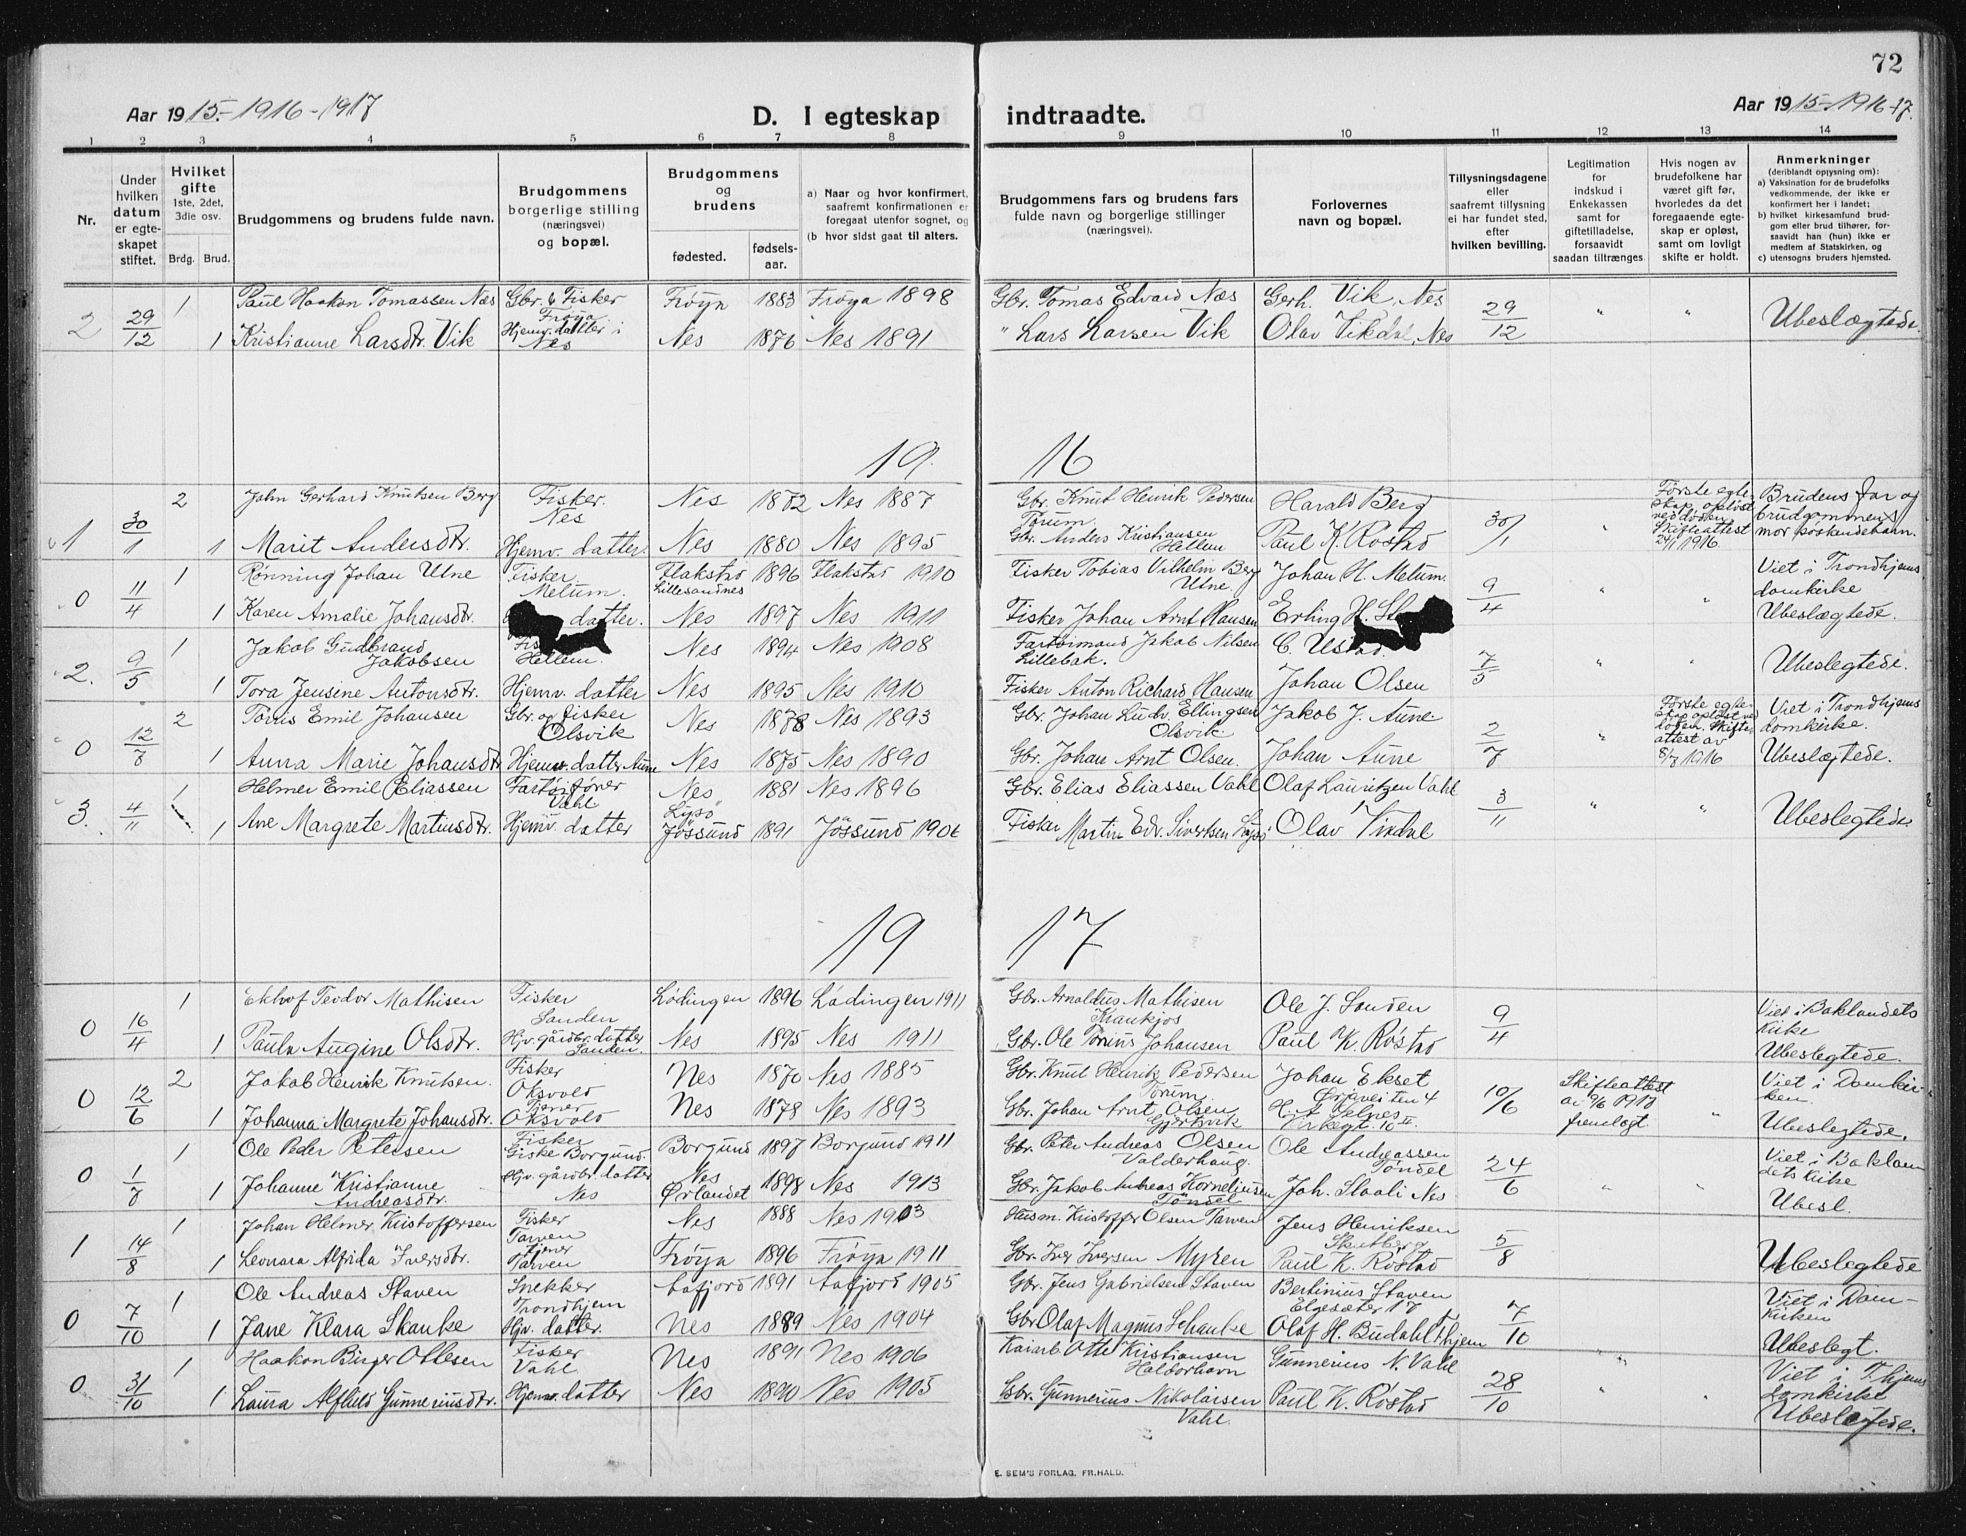 72
Aar 1915-1916-1917
D. I egteskap indtraadte.
Aar 1915-1916-17.
1 2 3 4 5 6 7 8 9 10 11 12 13 14
Nr.
Under hvilken datum er egteskapet stiftet.
Hvilket gifte 1ste, 2det, 3die osv.
Brdg. Brud.
Brudgommens og brudens fulde navn.
Brudgommens borgerlige stilling (næringsvei) og bopæl.
Brudgommens og brudens
fødested. fødsels-aar.
a) Naar og hvor konfirmert, saafremt konfirmationen er foregaat utenfor sognet, og
(b hvor sidst gaat til alters.
Brudgommens fars og brudens fars fulde navn og borgerlige stillinger (næringsvei).
Forlovernes navn og bopæl.
Tillysningsdagene eller saafremt tillysning ei har fundet sted, efter hvilken bevilling.
Legitimation for indskud i Enkekassen samt for giftetilladelse, forsaavidt saadan tiltrænges
Hvis nogen av brudefolkene har været gift før, hvorledes da det foregaaende egteskap er opløst, samt om lovligt skifte er holdt.
Anmerkninger (deriblandt opysning om):
a) Vaksination for de brudefolks vedkommende, der ikke er konfirmert her i landet;
b) hvilket kirkesamfund brudgom eller brud tilhører, forsaavidt han (hun) ikke er medlem af Statskirken, og
c) utensogns bruders hjemsted.
2 29/12 1 Paul Haakon Tomassen Næs Gbr. & Fisker Frøya Frøya 1883 Frøya 1898 Gbr. Tomas Edvard Næs Gerh. Vik, Nes 29/12 " " Ubeslægtede.
1 Kristianne Larsdtr. Vik Hjemv. datter i Nes Nes 1876 Nes 1891 " Lars Larsen Vik Olav Vikdal, Nes
1916
1 30/1 2 John Gerhard Knutsen Berg Fisker. Nes Nes 1872 Nes 1887 Gbr. Knut Henrik Pedersen Torum Harald Berg 30/1 " Første egteskap opløst ved døden Skifteattest 24/1 1916. Brudens far og brudgommens mor søskendebarn.
1 Marit Andersdtr. Hjemv. datter. Nes 1880 Nes 1895 Gbr. Anders Kristiansen Hellem Paul K. Røstad
0 11/4 1 Rønning Johan Utne Fisker. Metum. Flakstad Lillesandnes 1896 Flakstad 1910 Fisker Tobias Vilhelm Berg Utne Johan H. Metum. 9/4 " " Viet i Trondhjems domkirke Ubeslægtede.
1 Karen Amalie Johansdtr. datter. Nes 1897 Nes 1911 Fisker Johan Arnt Hansen Erling H.
2. 9/5 1 Jakob Gudbrand Jakobsen Hellem. Nes 1894 Nes 1908 Fartøimand Jakob Nilsen Lillebak. C. Ustad. 7/5 " " Ubeslegtede.
1 Tora Jensine Antonsdtr. Hjemv. datter Nes 1895 Nes 1910 Fisker Anton Richard Hansen Johan Olsen
0 12/8 2 Tonis Emil Johansen Gbr. og fisker Olsvik Nes 1878 Nes 1893 Gbr. Johan Ludv. Ellingsen Olsvik. Jakob J. Aune 2/7 " Første egteskap opløst ved døden. Skifteattest av 8/7 1916 Viet i Trondhjems domkirke. Ubeslægtede.
1 Anna Marie Johansdtr Hjemv. datter Aune Nes 1875 Nes 1890 Gbr. Johan Arnt Olsen. Johan Aune
3. 4/11 1 Helmer Emil Eliassen Fartøifører Vahl Nes 1881 Nes 1896 Gbr. Elias Eliassen Vahl Olaf Lauritzen Vahl 3/11 " " Ubeslegtede
1 Ane Margrete Martinsdtr. Hjemv. datter Lysø Jøssund 1891 Jøssund 1906 Fisker Martin Edv. Sivertsen Lysø Olav Vikdal
1917
0 16/4 1 Ekhof Teodor Mathisen Fisker Sanden Lødingen 1896 Lødingen 1911 Gbr. Arnoldus Mathisen Krankjos Ole J. Sanden 9/4 Viet i Baklandets kirke Ubeslegtede.
1 Paula Augine Olsdtr. Hjv. gårdbr. datter Sanden. Nes 1895 Nes 1911 Gbr. Ole Tonius Johansen Paul K. Røstad
0 12/6 2 Jakob Henrik Knutsen. Fisker Oksvold Nes 1870 Nes 1885 Gbr. Knut Henrik Pedersen Torum Johan Ekset Ørjaveiten 4 10/6 Skifteattest av 9/6 1917 fremlagt " Viet i Domkirken. Ubeslegtede.
1 Johanna Margrete Johansdtr. Tjener Oksvold Nes 1878 Nes 1893 Gbr. Johan Arnt Olsen Gjertsvik Kirkegt. 10 II.
0 1/8 1 Ole Peder Petersen Fisker Giske Borgund. Borgund 1897 Borgund 1911 Gbr. Peter Andreas Olsen Valderhaug. Ole Andreassen Tøndel 24/6 " " Viet i Baklandets kirke Ubesl.
1 Johanne Kristianne Andreasdtr. Hjv. gårdbr. datter Nes Nes Ørlandet 1898 Nes 1913 Gbr. Jakob Andreas Korneliussen Tøndel Joh. Staali Nes
1 14/8 1 Johan Helmer Kristoffersen Fisker Tarven Nes 1888 Nes 1903 Husm. Kristoffer Olsen Tarven Jens Henriksen 5/8 Ubeslegtede
1 Leonara Alfrida Iversdtr. Tjener Tarven Frøya 1896 Frøya 1911 Gbr. Iver Iversen Myren Paul K. Røstad
0 7/10 1 Ole Andreas Staven Snekker Trondhjem Aafjord 1891 Aafjord 1905 Gbr. Jens Gabrielsen Staven Bertinius Staven Elgesæter 17 7/10 Viet i Domkirken Ubeslegt.
1 Jane Klara Skanke Hjv. datter. Nes 1889 Nes 1904 Gbr. Olaf Magnus Schanke Olaf H. Budahl T.hjem
0 31/10 1 Haakon Birger Ottesen Fisker Vahl Nes 1891 Nes 1906 Otte Kristiansen Halborhavn Gunnerius N. Vahl 28/10 " " Viet i T.hjems domkirke Ubeslegtede.
1 Laura Alflild Gunneriusdtr. Hjemv. datter Nes 1890 Nes 1905 Gbr. Gunnerius Nikolaisen Vahl. Paul K. Røstad
E. SEM'S FORLAG, FR.HALD.